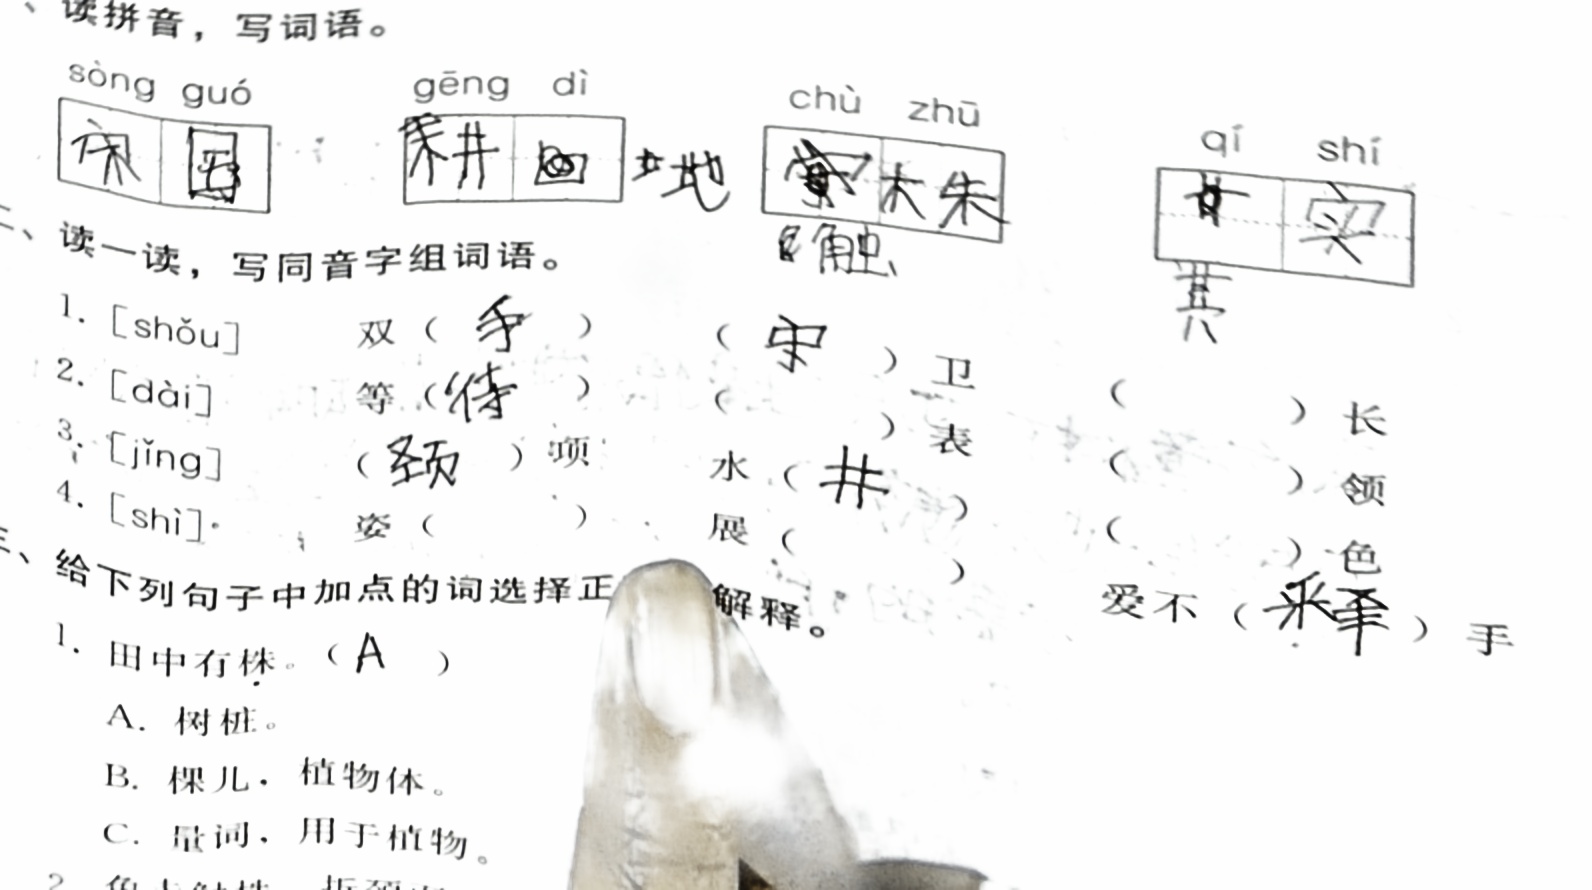 、读拼音，写词语。
sòng guó gēng dì chù zhū qí shí
宋国 耕 地 株 实
触 其
二、读一读，写同音字组词语。
1. [shǒu] 双（手） （守）卫 （ ）长
2. [dài] 等（待） （ ）表 （ ）领
3. [jǐng] （颈）项 水（井） （ ）色
4. [shì] 姿（ ） 展（ ） 爱不（释）手
三、给下列句子中加点的词选择正 解释。
1. 田中有株。（A）
A. 树桩。
B. 棵儿，植物体。
C. 量词，用于植物。
2